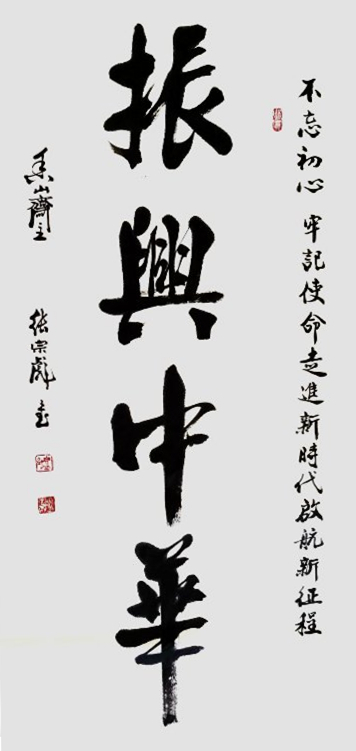 不忘初心 牢記使命走進新時代啟航新征程
振興中華
香山齋主 張宗彪書